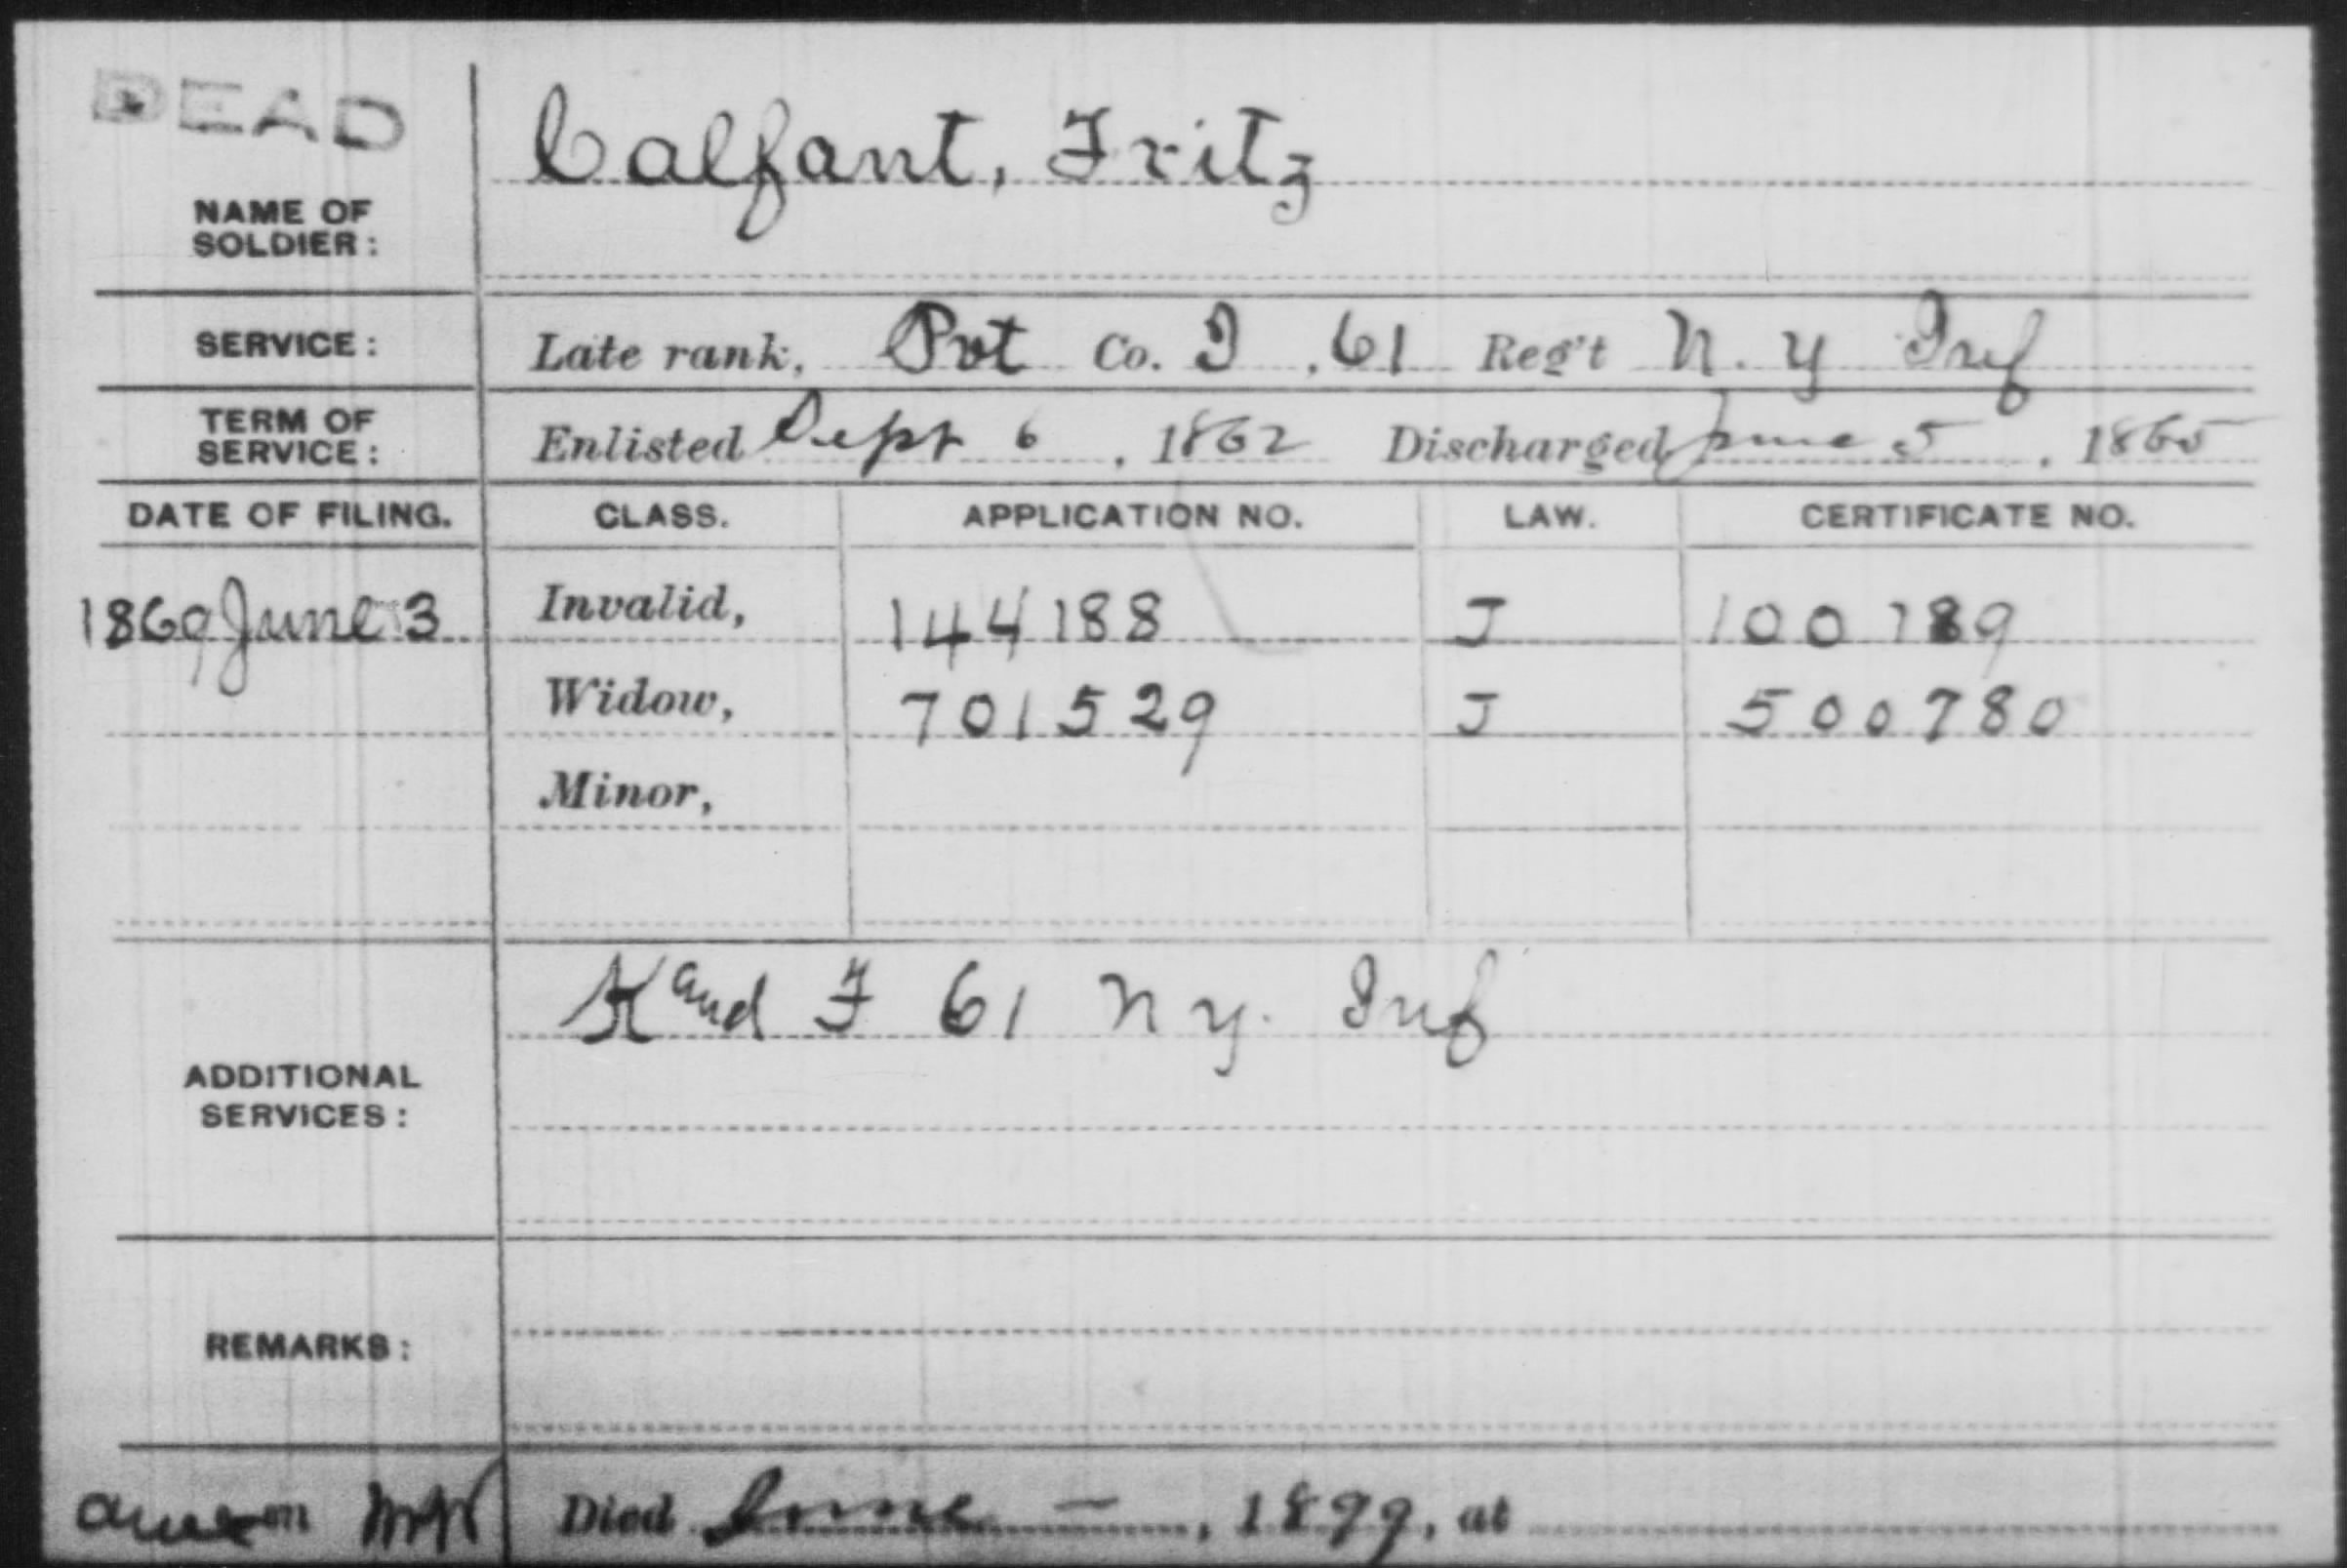 DEAD
Calfant, Fritz
NAME OF
SOLDIER:
SERVICE: Late rank, Pvt Co. I, 61 Reg't N. Y Inf
TERM OF
SERVICE: Enlisted Sept 6, 1862 Discharged June 5, 1865
DATE OF FILING. CLASS. APPLICATION NO. LAW. CERTIFICATE NO.
1869 June 3 Invalid, 144188 J 100789
Widow, 701529 J 500780
Minor,
K and F 61 N Y. Inf
ADDITIONAL
SERVICES:
REMARKS:
Died June —, 1899, at